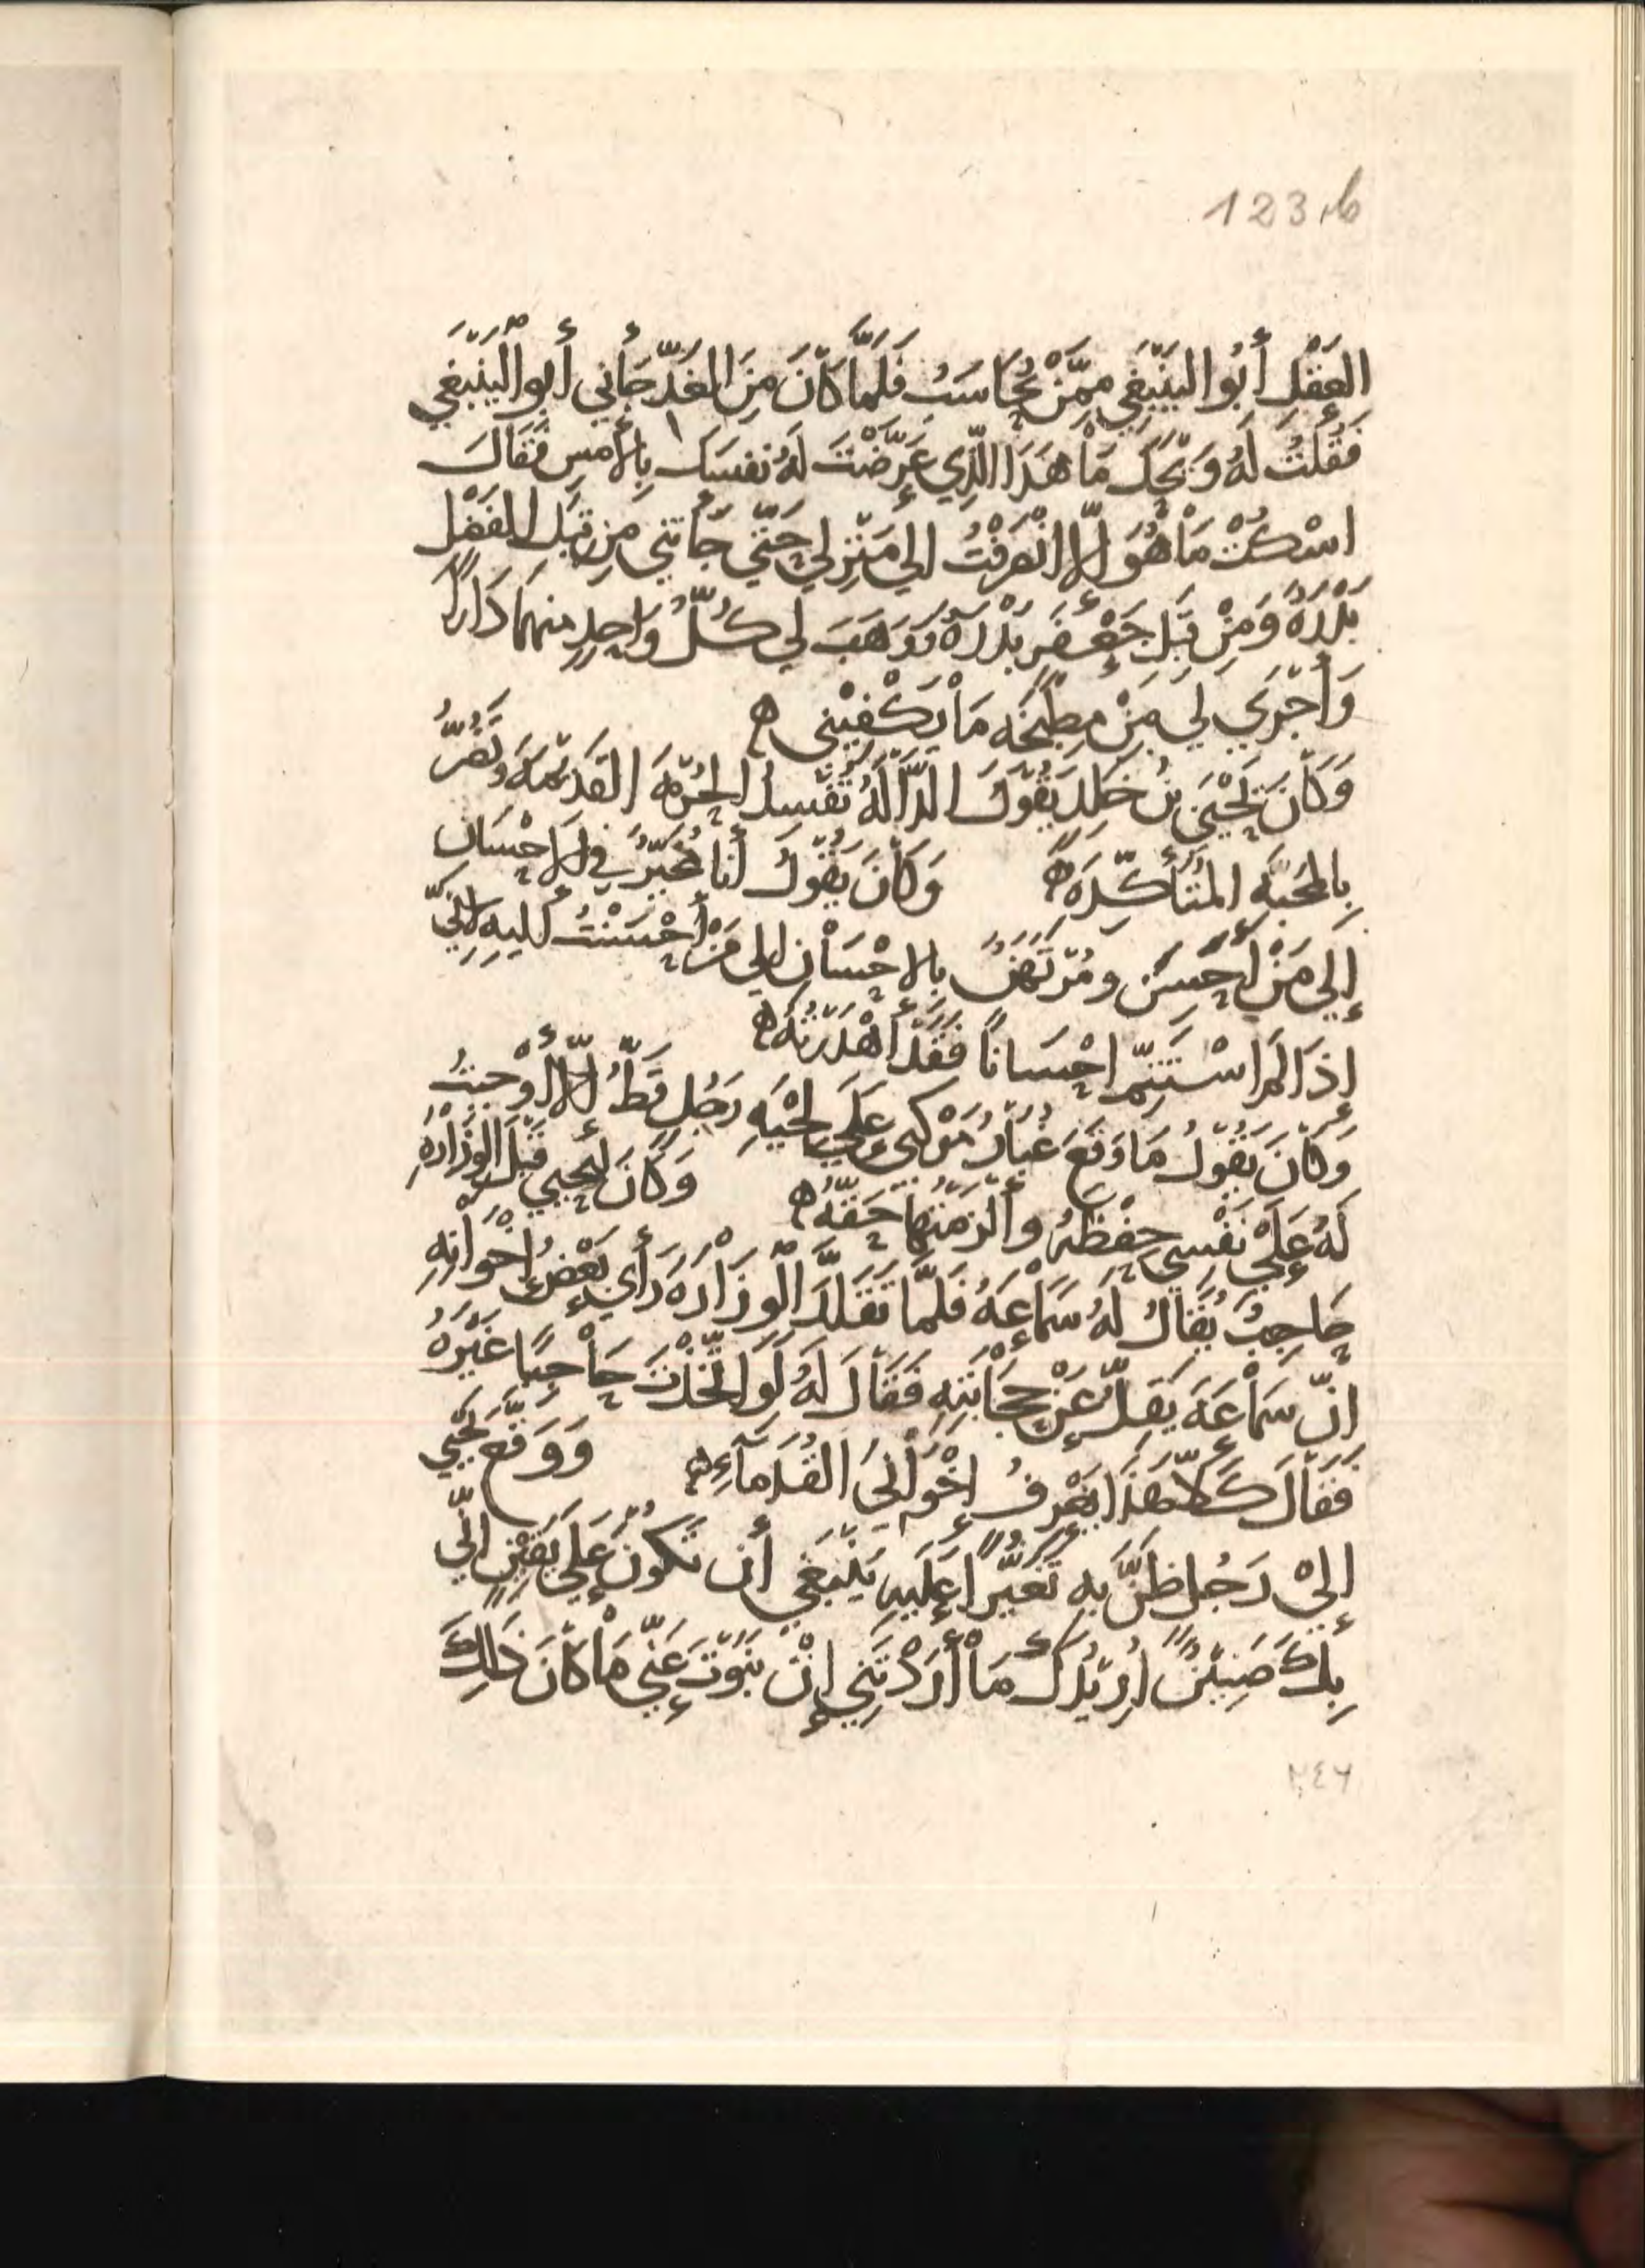 123,b
العَقْلِ أَبُو اليَنْبَغِي مِمَّنْ يُحَاسَبُ فَلَمَّا كَانَ مِنَ الغَدِّ جَأَنِي أَبو الْيَنْبَغِي
فَقُلْتُ لَهُ وَيْحَكَ مَا هَذَا الَّذِي عَرَّضْتَ لَهُ نَفْسَكَ بِالأَمسِ فَقَالَ
اسْكُتْ مَا هُوَ إِلَّا انْصَرَفْتُ إلي مَنْزِلِي حَتَّي جَأَتْنِي مِن قِبَلِ الفَضْلِ
بَدْرَةٌ وَمِنْ قِبَلِ جَعْفَرٍ بَدْرَةٌ وَوَهَبَ لي كُلُّ وَاحِدٍ مِنهمَا دَاراً
وَأَجْرَي لِيَ مِنْ مطبخه مَا يَكْفِيْني ه
وَكَانَ يَحْيَي بنُ خَلِدَ يَقُوْلُ الدَّالَّةُ تُفْسِدُ الحُرْمَةَ القَدِيْمَةَ وَتَضُرُّ
بِالمَحَبَّةِ المُتَأَكِّدَةِ ه وَكَانَ يَقُوْلُ أَنَا مُخَيَّرٌ فِي الإِحْسَانِ
إلي مَنْ أُحْسِنُ ومُرْتَهَنٌ بِالاحْسَانِ إلي مَنْ أَحْسَنْتُ إليهِ لأَنِّي
إذَا لَم اسْتَتِمَّ احْسَاناً فَقَدْ أَهْدَرْتُهُ ه
وَكَانَ يَقُوْلُ مَا وَقَعَ غُبَارُ مَوْكبي عَلَي لِحْيَةِ رَجُلٍ قَطُّ إِلَّا أَوْجَبْتُ
لَهُ عَلَيْ نَفْسِي حِفْظَهُ وأَلْزَمْتُهَا حَقَّهُ ه وَكَانَ ليَحْيي قَبْلَ الوِزَارَةِ
حَاجِبٌ يُقَالُ لَهُ سَمَاعَةُ فَلَمَّا تَقَلَّدَ الْوِزَارَةَ رَأَي بَعْضُ اخْوَانِهِ
انَّ سَمَاعَةَ يَقِلُّ عَنْ حِجَابَتِهِ فَقَالَ لَهُ لَو اتَّخَذْتَ حَاجِبًا غَيْرَهُ
فَقَالَ كَلَّا هَذَا يَعْرِفُ إخْوَانِيَ القُدَمَآءَ ه وَوَقَّعَ يَحْيَي
إليْ رَجُلٍ ظَنَّ بِهِ تَغَيُّراً عَلَيهِ يَنْبَغِي أَن تَكُونَ عَلَي يَقِيْنٍ انِّي
بِكَ ضَنِيْنٌ اُرِيْدُكَ مَا أَرَدْتَنِي إنْ نَبَوْتَ عَنِّي مَا كَانَ ذَالِكَ
٢٤٦